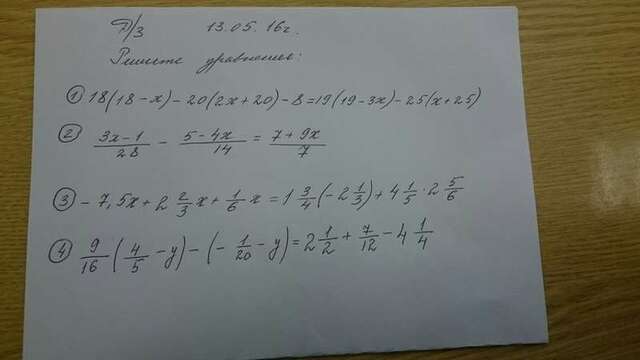 Д/З 13.05.16г.
Решите уравнения:
① 18(18-x)-20(2x+20)-8=19(19-3x)-25(x+25)
② (3x-1)/28 - (5-4x)/14 = (7+9x)/7
③ -7,5x+2 2/3 x+1/6 x=1 3/4(-2 1/3)+4 1/5·2 5/6
④ 9/16(4/5-y)-(-1/20-y)=2 1/2+7/12-4 1/4